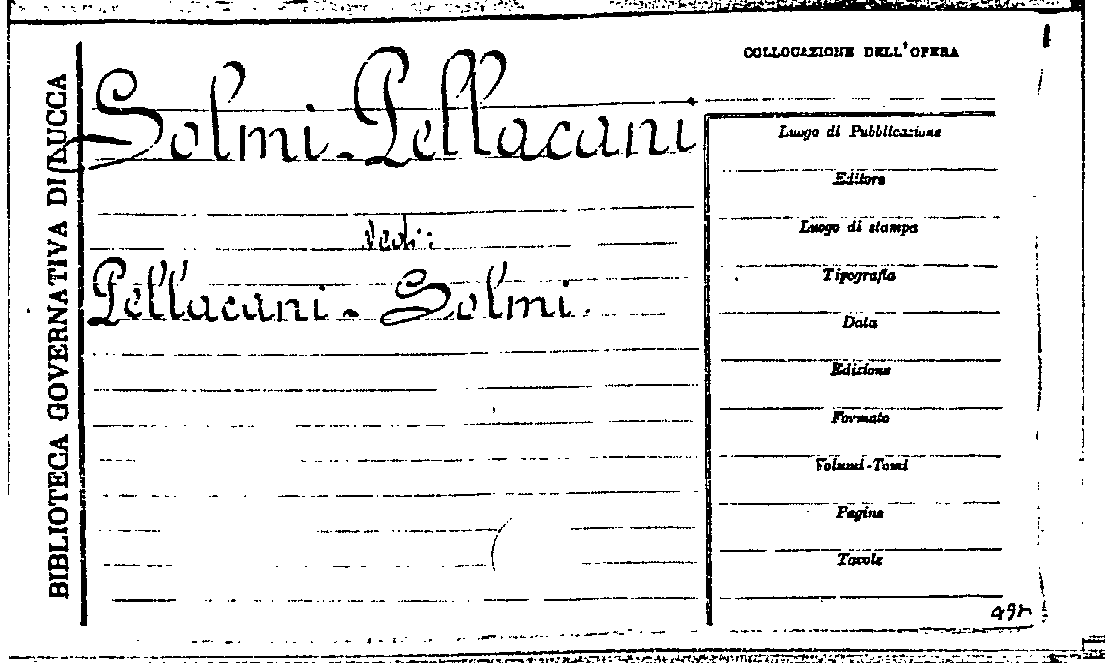 BIBLIOTECA GOVERNATIVA DI LUCCA
Solmi-Pellacani
vedi:
Pellacani-Solmi.
COLLOCAZIONE DELL'OPERA
Luogo di Pubblicazione
Editore
Luogo di stampa
Tipografia
Data
Edizione
Formato
Volumi-Tomi
Pagine
Tavole